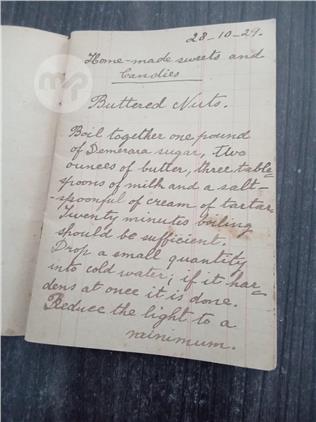 28-10-29.
Home-made sweets and
Candies
Buttered Nuts.
Boil together one pound
of Demerara sugar, two
ounces of butter, three table-
spoons of milk and a salt-
-spoonful of cream of tartar.
Twenty minutes boiling
should be sufficient.
Drop a small quantity
into cold water; if it har-
dens at once it is done.
Reduce the light to a
minimum.